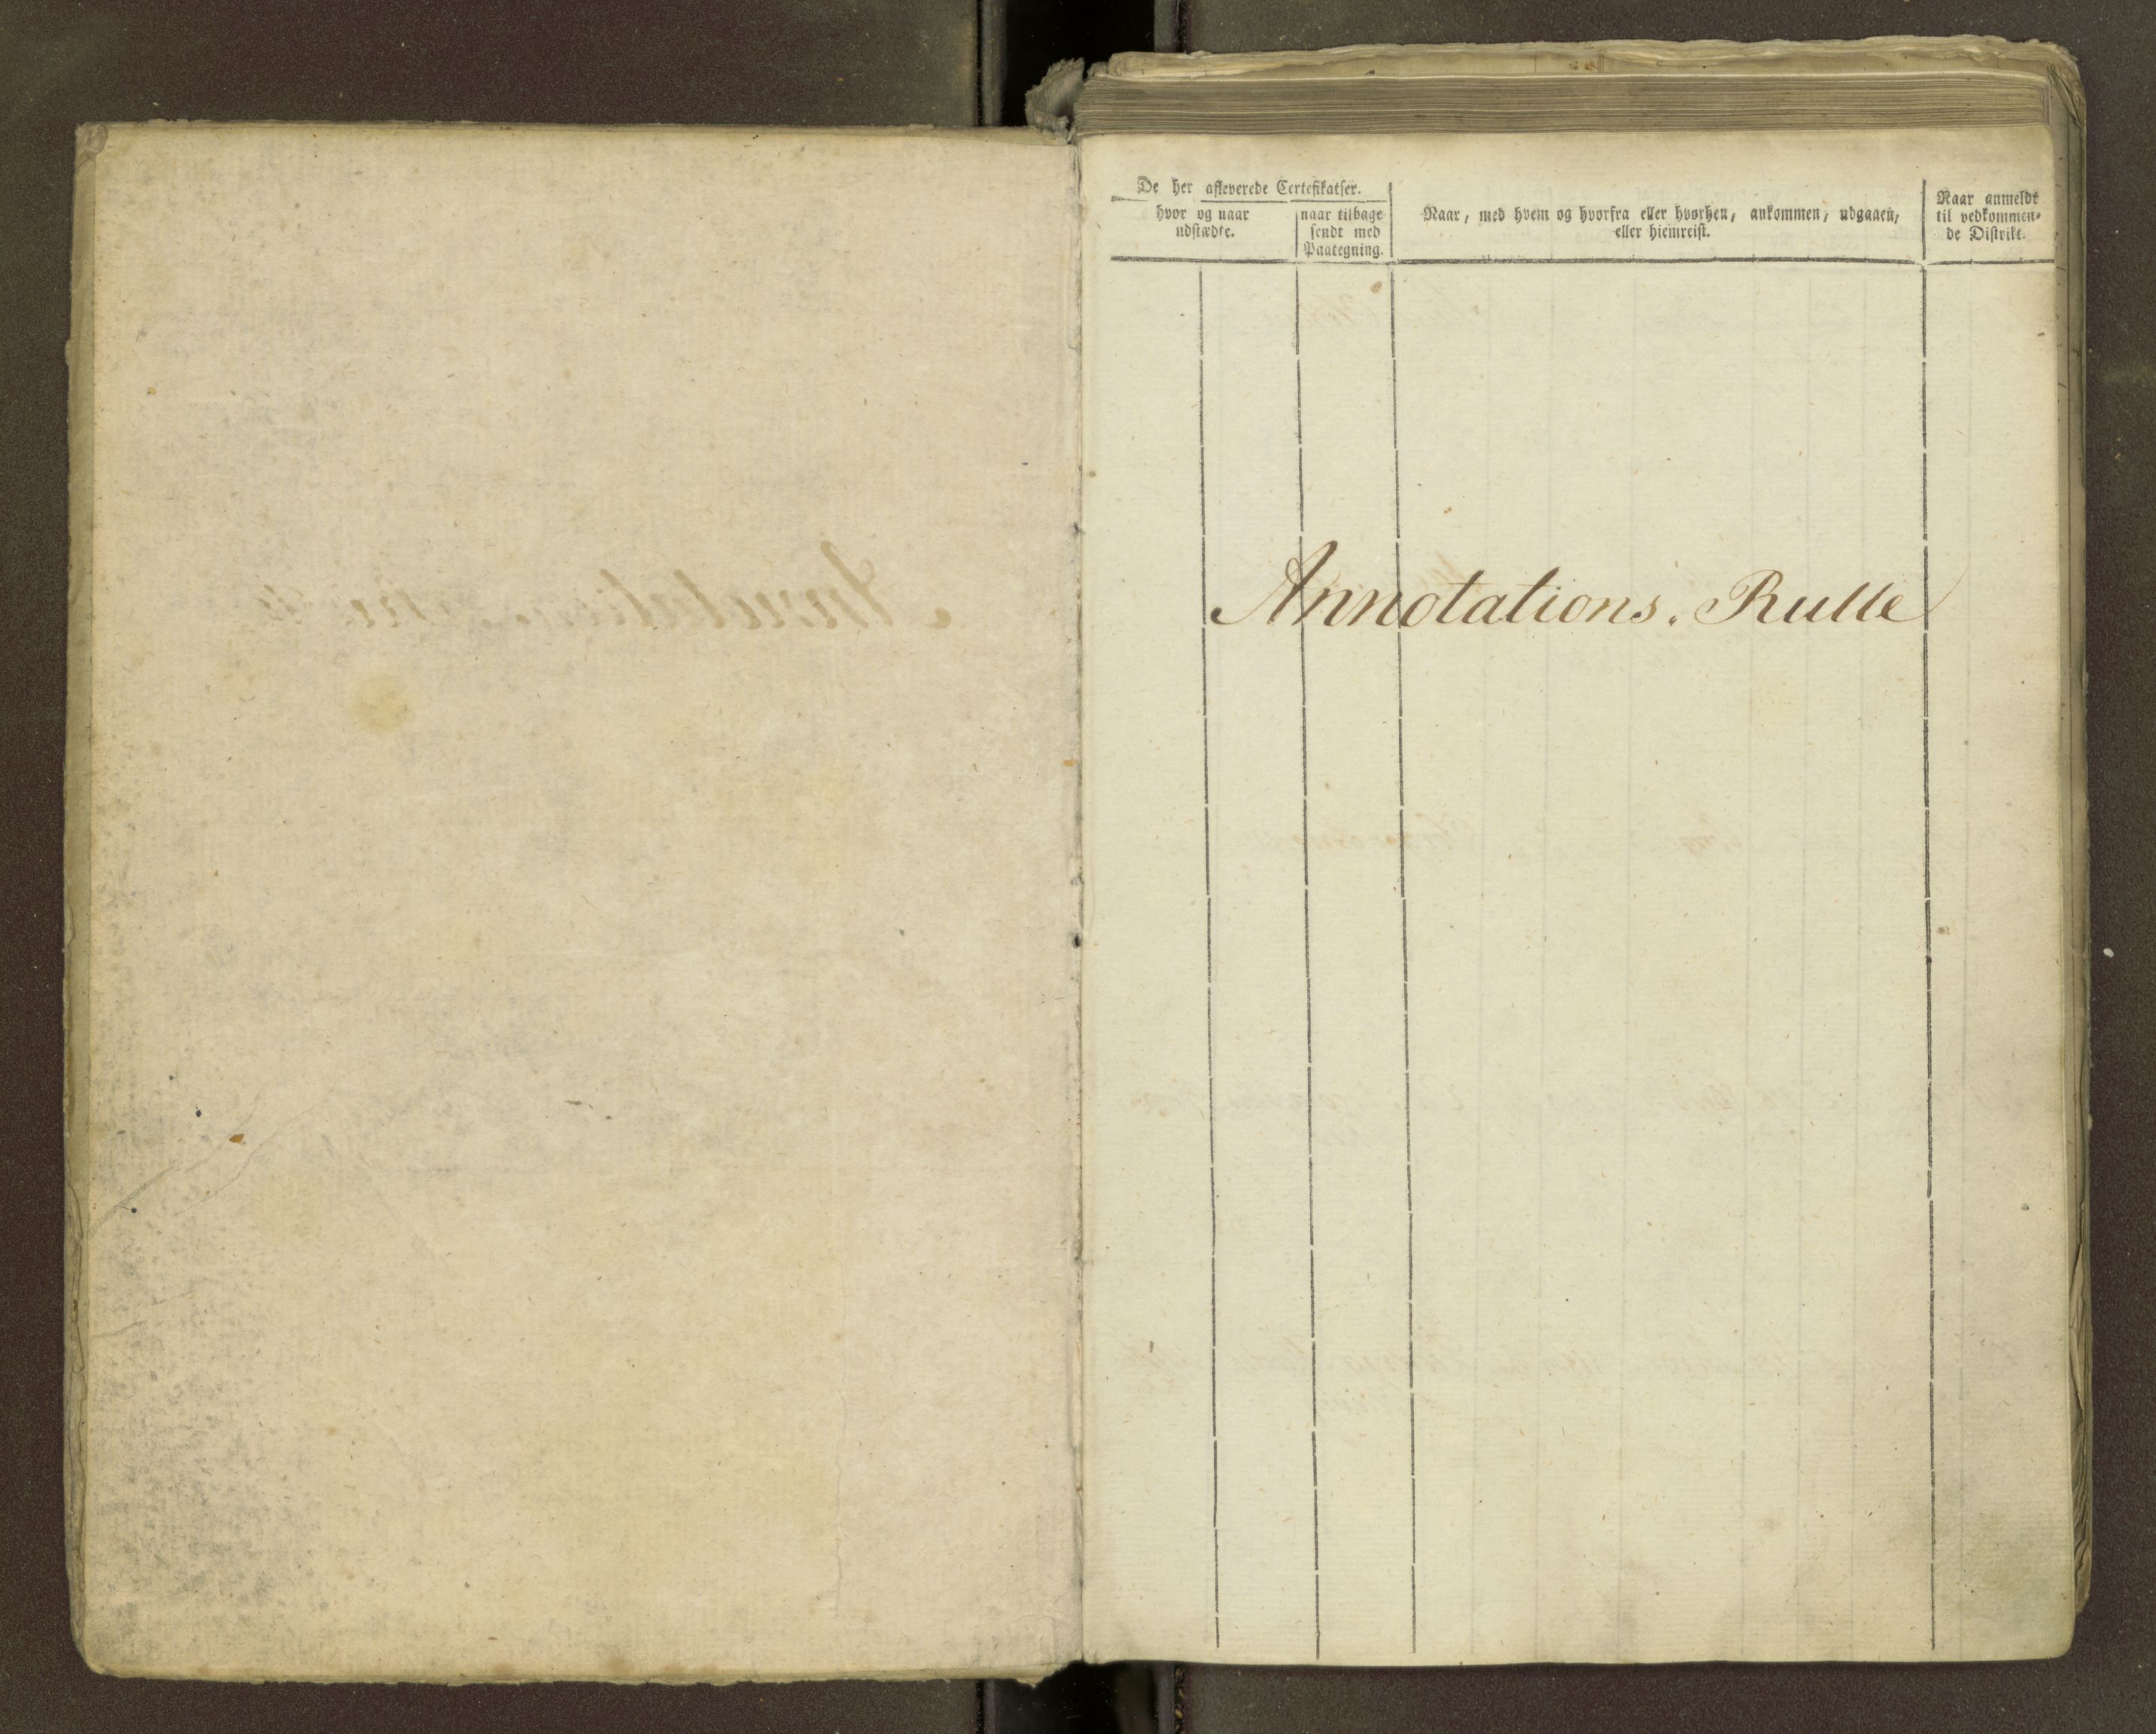 De her afleverede Certefikatser.
hvor og naar
udstædte.
naar tilbage
sendt med
Paategning.
Naar, med hvem og hvorfra eller hvorhen, ankommen, udgaaen,
eller hiemreist.
Naar anmeldt
til vedkommen-
de Distrikt.
Annotations. Rulle